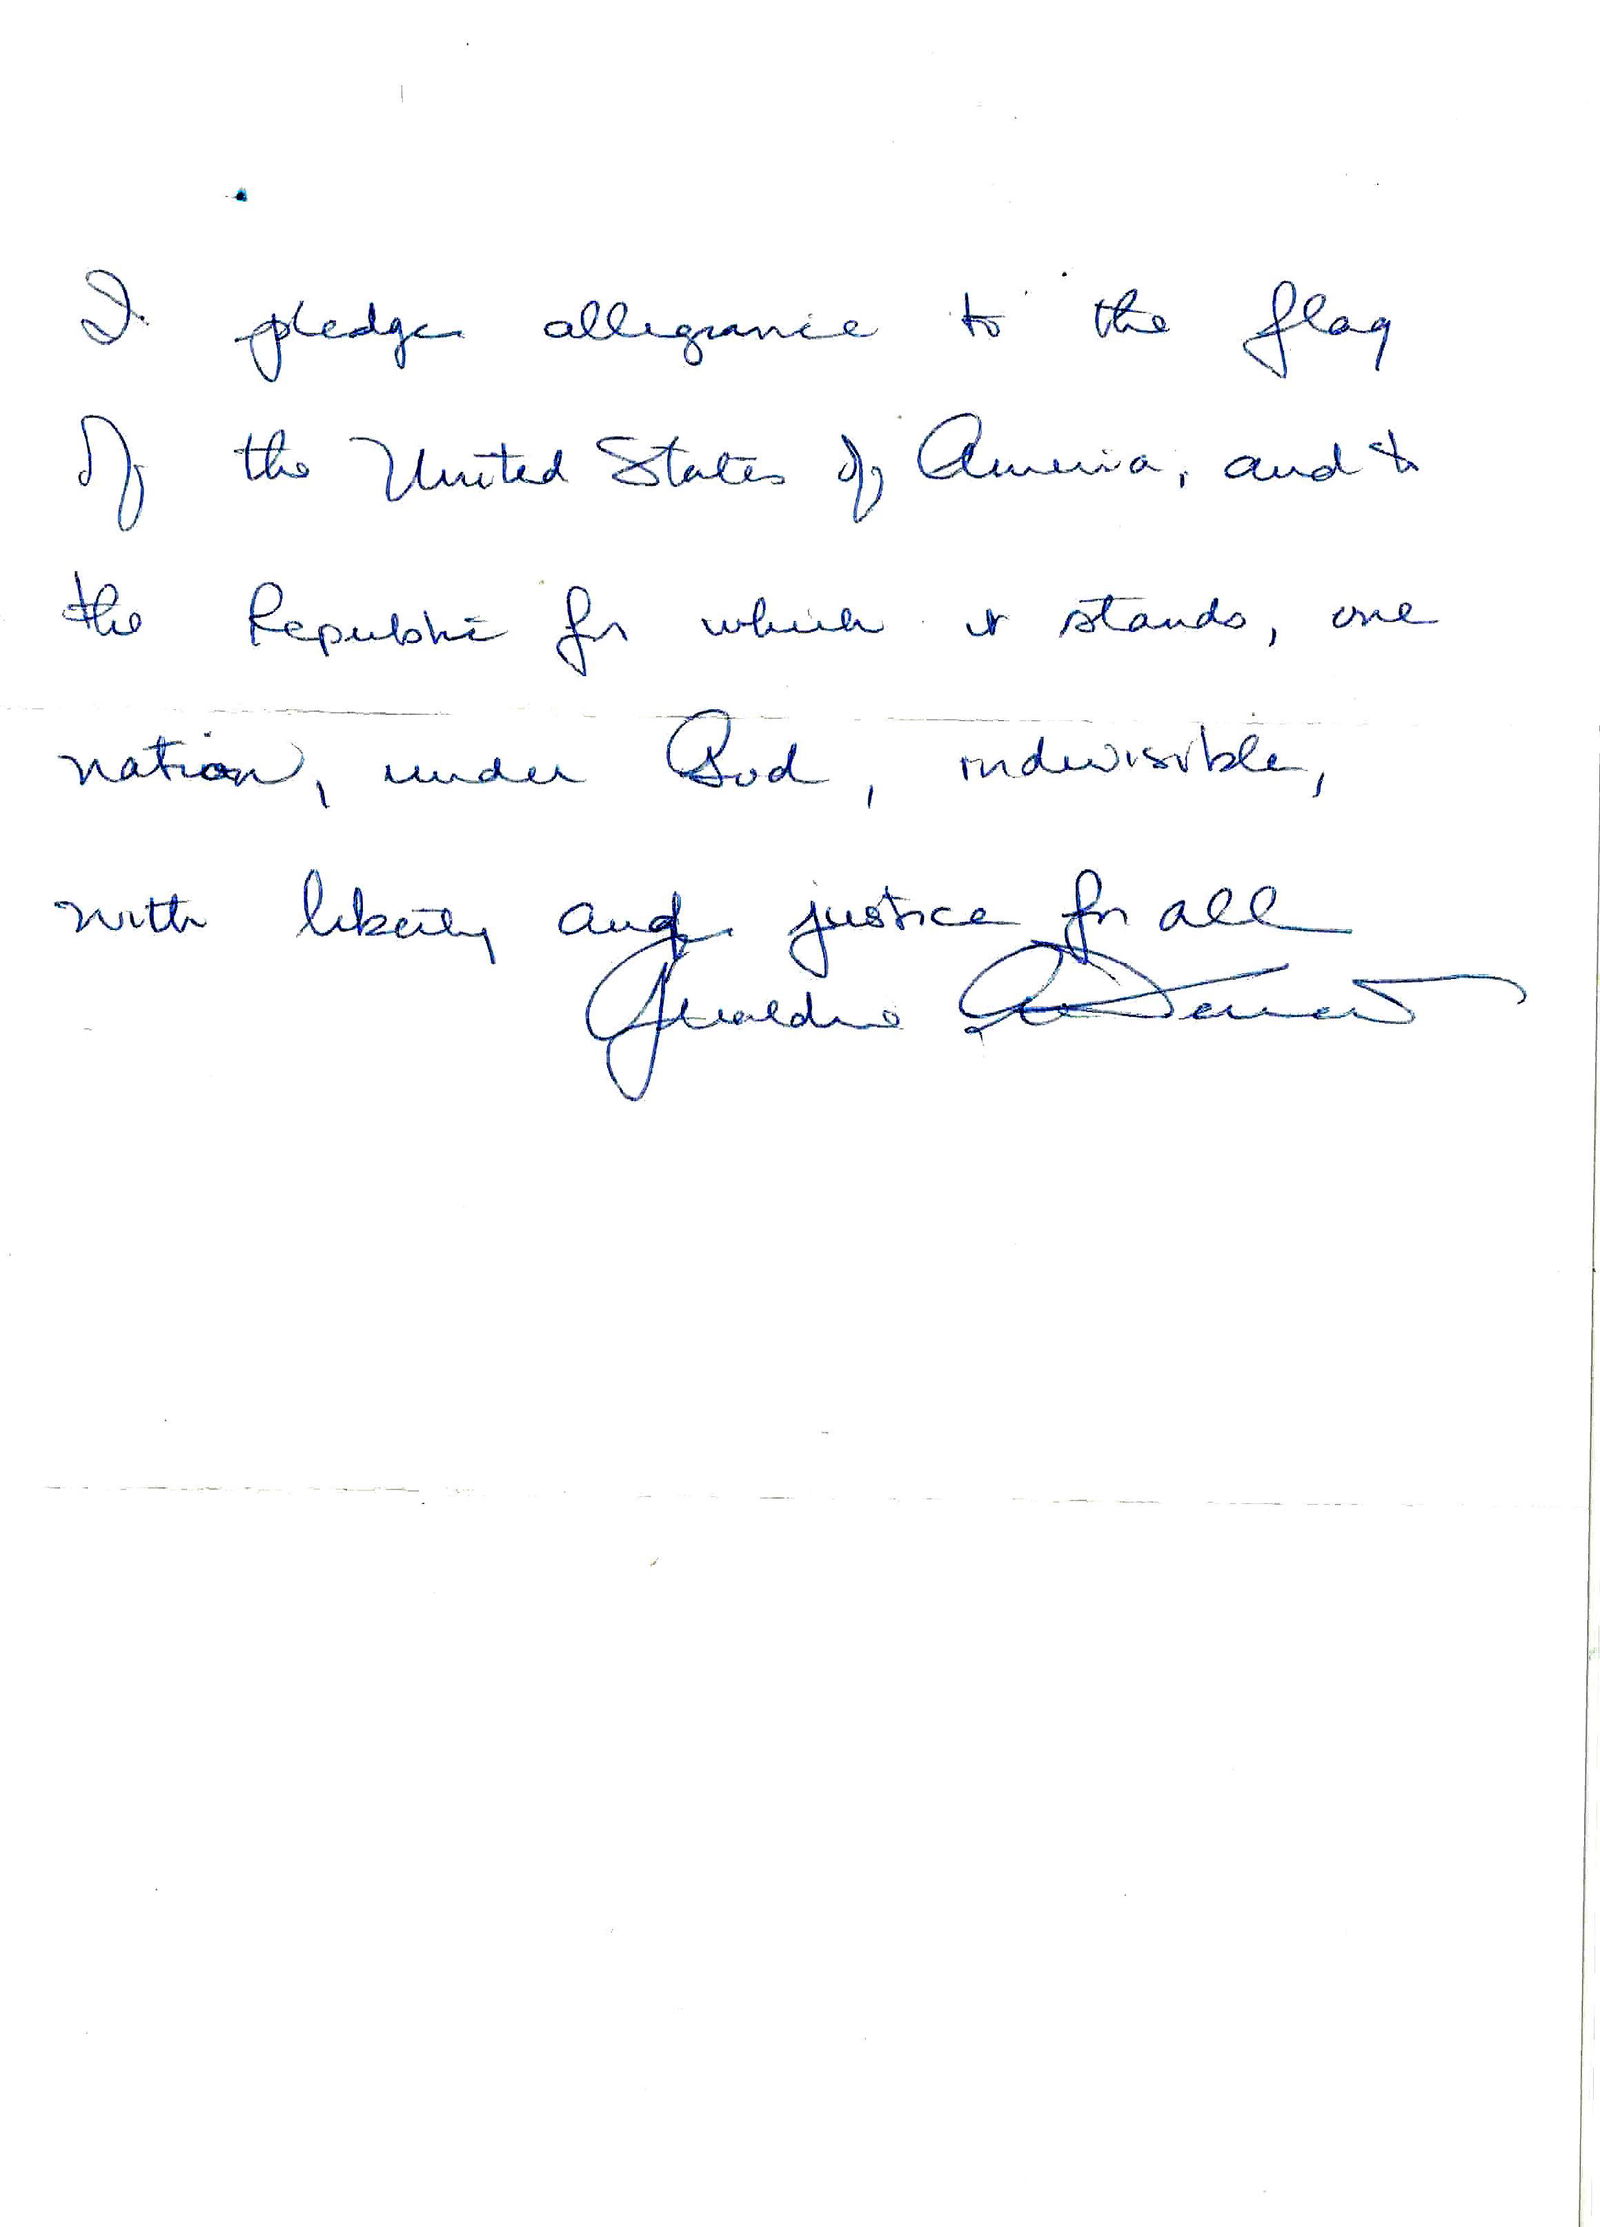 I pledge allegiance to the flag
of the United States of America, and to
the Republic for which it stands, one
nation, under God, indivisible,
with liberty and justice for all
Geraldine